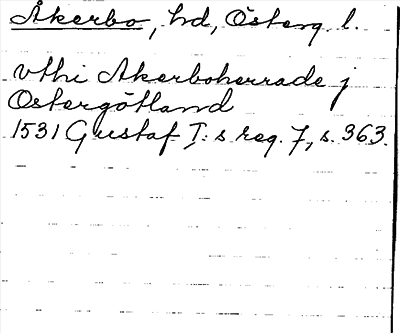 Åkerbo, hd, Österg. l.
vthi Akerboherrade j
Ostergötland
1531 Gustaf I:s reg. 7, s. 363.